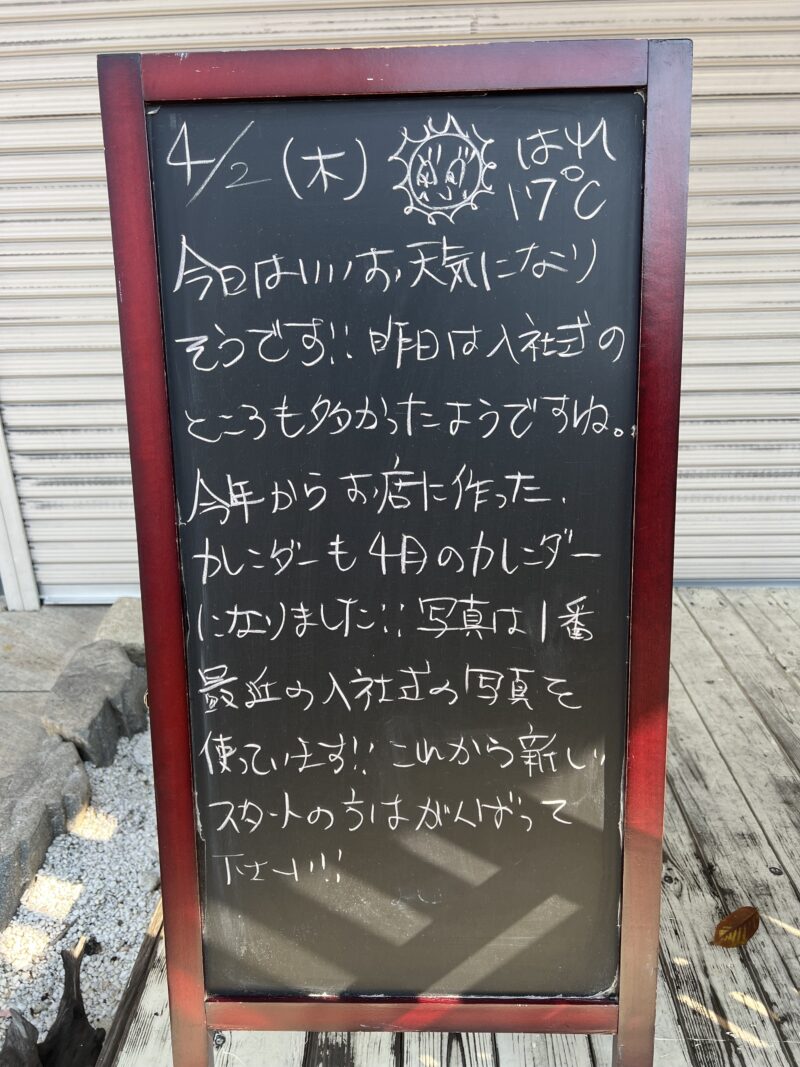 4/2 (木) はれ
17℃
今日はいいお天気になり
そうです!! 昨日は入社式の
ところも多かったようですね。
今年からお店に作った、
カレンダーも4月のカレンダー
になりました!! 写真は1番
最近の入社式の写真を
使っています!! これから新しい
スタートの方はがんばって
下さーい!!